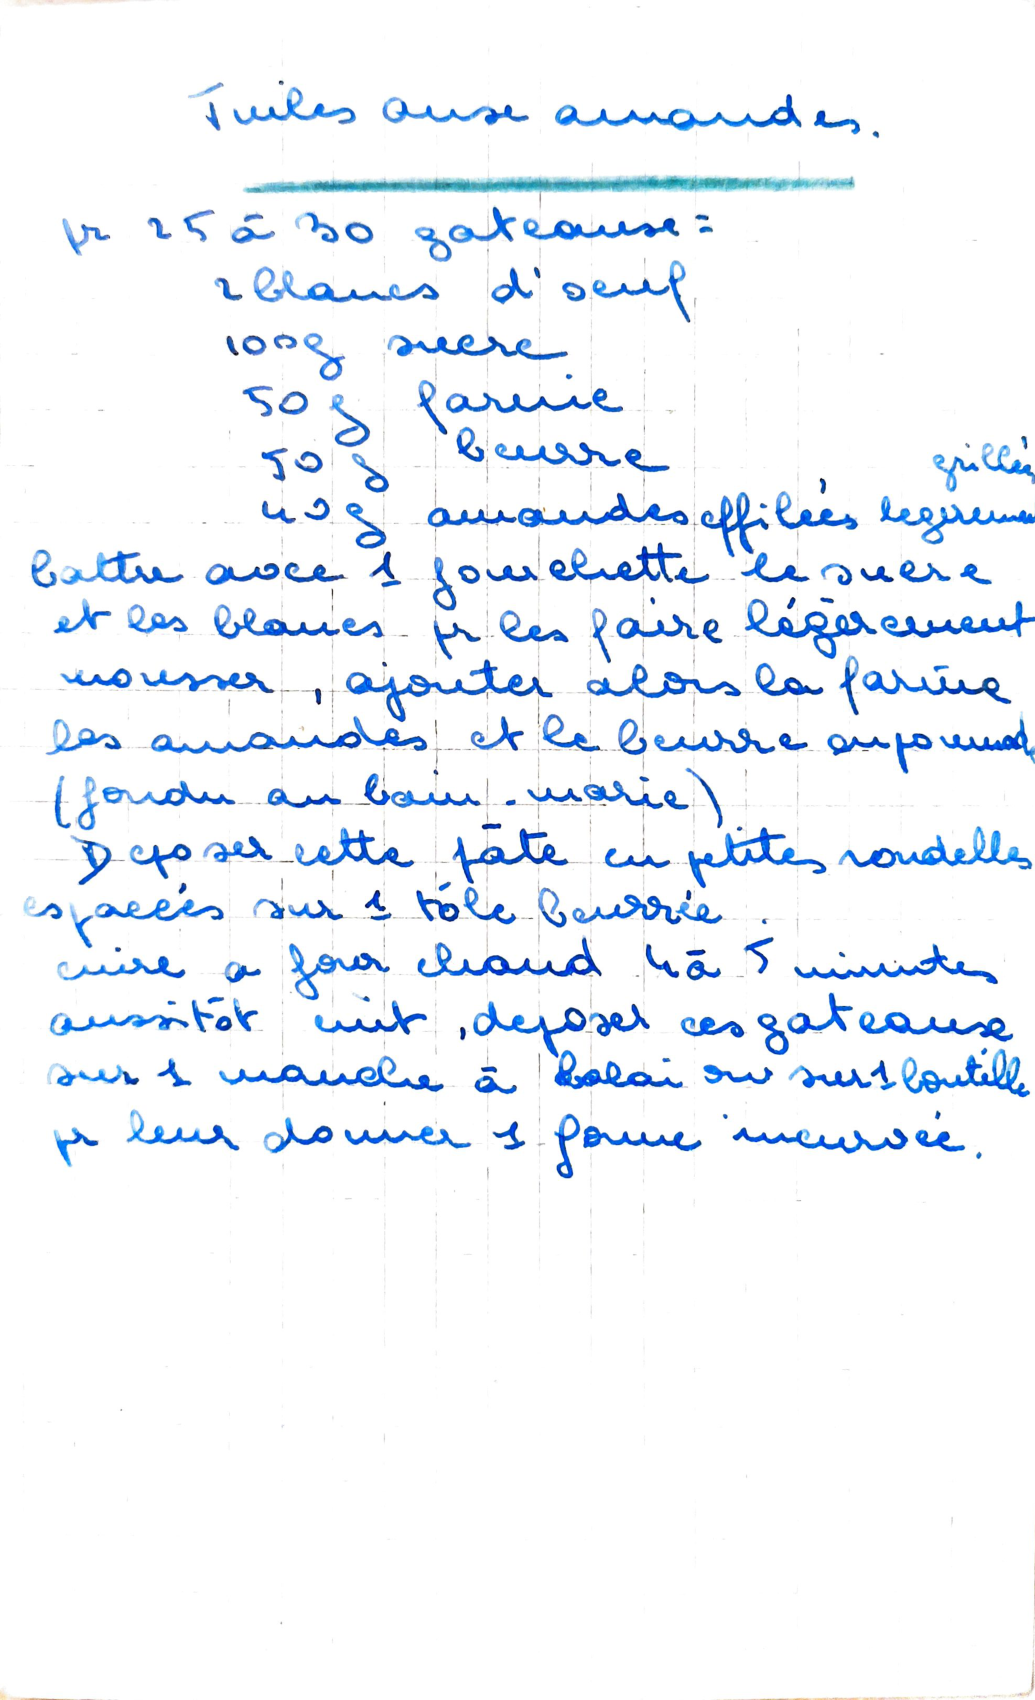 Tuiles aux amandes.
pr 25 à 30 gateaux =
2 blancs d'oeuf
100g sucre
50g farine
50g beurre
grillés
40g amandes effilées legeremen
battre avec 1 fourchette le sucre
et les blancs pr les faire légèrement
mousser, ajouter alors la farine
les amandes et le beurre en pommade
(fondu au bain-marie)
Deposer cette pâte en petites rondelles
espacées sur 1 tôle beurrée.
cuire a four chaud 4 à 5 minutes
aussitôt cuit, deposer ces gateaux
sur 1 manche à balai ou sur 1 bouteille
pr leur donner 1 forme incurvée.